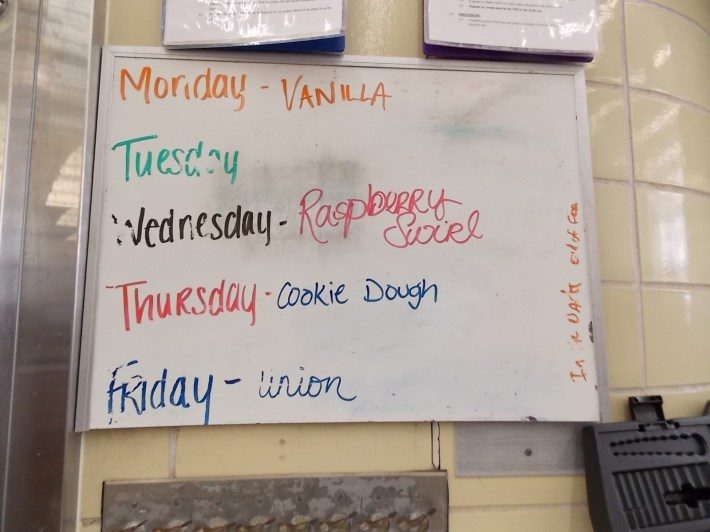 Monday - VANILLA
Tuesday
Wednesday - Raspberry
Swirl
Thursday - Cookie Dough
Friday - union